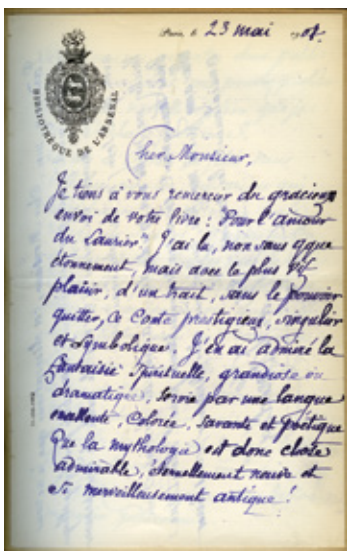 BIBLIOTHÈQUE DE L'ARSENAL
Paris, le 23 mai 1908.
Cher Monsieur,
Je tiens à vous remercier du gracieux
envoi de votre livre : "Pour l'amour
du Laurier". J'ai lu, non sans qque
étonnement, mais avec le plus vif
plaisir, d'un trait, sans le pouvoir
quitter, ce Conte prestigieux, singulier
et symbolique. J'en ai admiré la
fantaisie spirituelle, grandiose ou
dramatique, servie par une langue
excellente, colorée, savante et poétique
Que la mythologie est donc chose
admirable, éternellement neuve et
si merveilleusement antique !